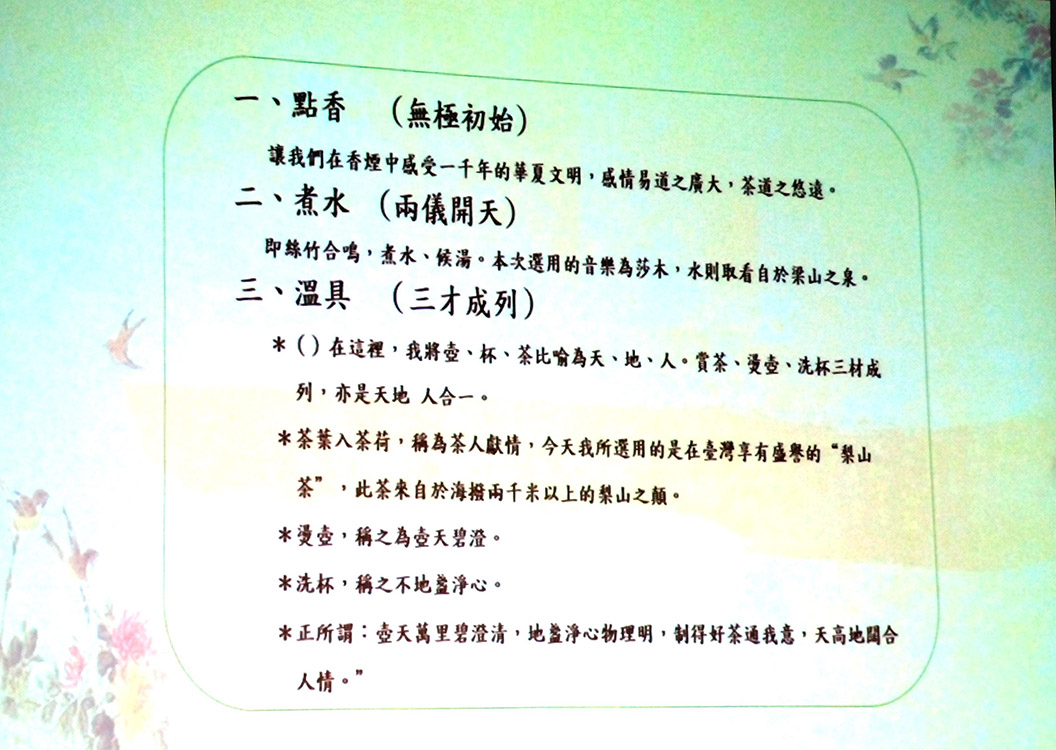 一、點香 （無極初始）
讓我們在香煙中感受一千年的華夏文明，感情易道之廣大，茶道之悠遠。
二、煮水 （兩儀開天）
即絲竹合鳴，煮水、候湯。本次選用的音樂為莎木，水則取看自於梁山之泉。
三、溫具 （三才成列）
＊（）在這裡，我將壺、杯、茶比喻為天、地、人。賞茶、燙壺、洗杯三材成
列，亦是天地 人合一。
＊茶葉入茶荷，稱為茶人獻情，今天我所選用的是在臺灣享有盛譽的“梨山
茶”，此茶來自於海撥兩千米以上的梨山之顛。
＊燙壺，稱之為壺天碧澄。
＊洗杯，稱之不地盞淨心。
＊正所謂：壺天萬里碧澄清，地盞淨心物理明，制得好茶通我意，天高地闊合
人情。”